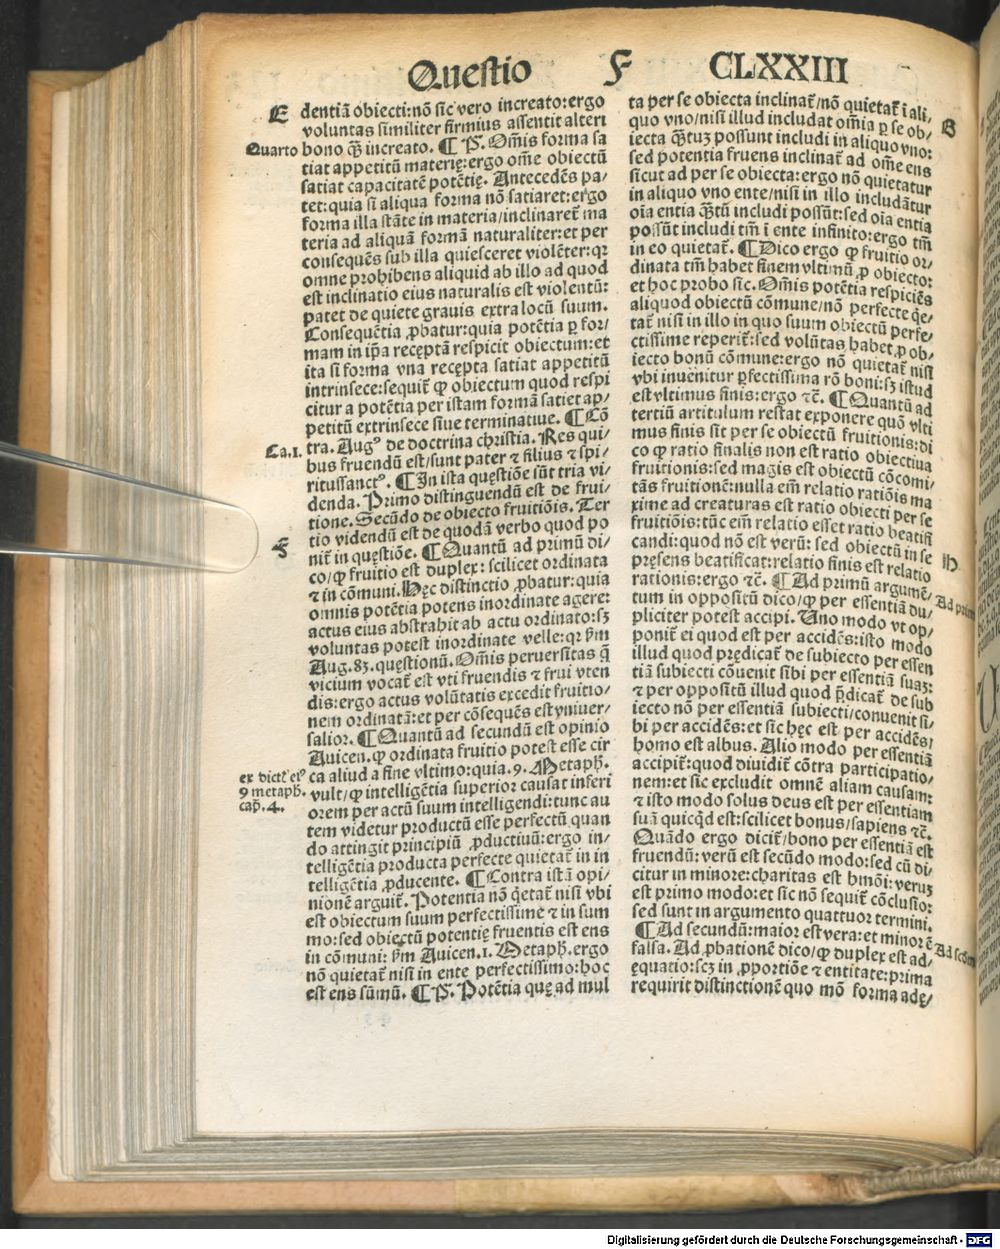 Questio F CLXXIII
E
dentiã obiecti:nõ sic vero increato:ergo
voluntas similiter firmius assentit alteri
Quarto bono q̃ȝ increato. ¶ P̃. Oĩs forma sa
tiat appetitũ materię:ergo om̃e obiectũ
satiat capacitatẽ potẽtię. Antecedẽs pa⸗
tet:quia si aliqua forma nõ satiaret:ergo
forma illa stãte in materia/inclinaret̃ ma
teria ad aliquã formã naturaliter:et per
consequẽs sub illa quiesceret violẽter:qꝛ
omne prohibens aliquid ab illo ad quod
est inclinatio eius naturalis est violentũ:
patet de quiete grauis extra locũ suum.
Consequẽtia ꝓbatur:quia potẽtia ꝑ for/
mam in ip̃a recęptã respicit obiectum:et
ita si forma vna recępta satiat appetitũ
intrinsece:sequit̃ ꝙ obiectum quod respi
citur a potẽtia per istam formã satiet ap/
petitũ extrinsece siue terminatiue. ¶ Cõ
Ca.1. tra. Augꝰ de doctrina christia. Res qui/
bus fruendũ est/sunt pater ⁊ filius ⁊ spi/
ritussanctꝰ. ¶ In ista quęstiõe sũt tria vi/
denda. Primo distinguendũ est de frui/
tione. Secũdo de obiecto fruitiõis. Ter
tio videndũ est de quodã verbo quod po
nit̃ in quęstiõe. ¶ Quantũ ad primũ di/
co/ꝙ fruitio est duplex: scilicet ordinata
⁊ in cõmuni. Hęc distinctio ꝓbatur:quia
omnis potẽtia potens inordinate agere:
actus eius abstrahit ab actu ordinato:sȝ
voluntas potest inordinate velle:qꝛ ẜm
Aug.83.quęstionũ. Om̃is peruersitas q̃
vicium vocat̃ est vti fruendis ⁊ frui vten
dis:ergo actus volũtatis excedit fruitio/
nem ordinatã:et per cõsequẽs est vniuer/
salior. ¶ Quantũ ad secundũ est opinio
Auicen.ꝙ ordinata fruitio potest esse cir
ex dict̃ eiꝰ ca aliud a fine vltimo:quia.9. Metaph.
9 metaph. vult/ꝙ intelligẽtia superior causat inferi
cap̃.4. orem per actũ suum intelligendi:tunc au
tem videtur productũ esse perfectũ quan
do attingit principiũ ꝓductiuũ:ergo in/
telligẽtia producta perfecte quietat̃ in in
telligẽtia ꝓducente. ¶ Contra istã opi/
nionẽ arguit̃. Potentia nõ q̇etat̃ nisi vbi
est obiectum suum perfectissime ⁊ in sum
mo:sed obiectũ potentię fruentis est ens
in cõmuni: ẜm Auicen.1. Metaph.ergo
nõ quietat̃ nisi in ente perfectissimo:hoc
est ens sũmũ. ¶ P̃. Potẽtia quę ad mul
ta per se obiecta inclinat̃/nõ quietat̃ ĩ ali/
quo vno/nisi illud includat om̃ia ꝑ se ob/
B
iecta q̃ȝtuȝ possunt includi in aliquo vno:
sed potentia fruens inclinat̃ ad om̃e ens
sicut ad per se obiecta:ergo nõ quietatur
in aliquo vno ente/nisi in illo includãtur
oĩa entia q̃ȝtũ includi possũt:sed oĩa entia
possũt includi tm̃ ĩ ente infinito:ergo tm̃
in eo quietat̃. ¶ Dico ergo ꝙ fruitio or/
dinata tm̃ habet finem vltimũ ꝓ obiecto:
et hoc probo sic. Om̃is potẽtia respiciẽs
aliquod obiectũ cõmune/nõ perfecte q̇e/
tat̃ nisi in illo in quo suum obiectũ perfe/
ctissime reperit̃:sed volũtas habet ꝓ ob/
iecto bonũ cõmune:ergo nõ quietat̃ nisi
vbi inuenitur ꝑfectissima rõ boni:sȝ istud
est vltimus finis:ergo ⁊c̃. ¶ Quantũ ad
tertiũ articulum restat exponere quõ vlti
mus finis sit per se obiectũ fruitionis:di
co ꝙ ratio finalis non est ratio obiectiua
fruitionis:sed magis est obiectũ cõcomi/
tãs fruitionẽ:nulla em̃ relatio ratiõis ma
xime ad creaturas est ratio obiecti per se
fruitiõis:tũc em̃ relatio esset ratio beatifi
candi:quod nõ est verũ: sed obiectũ in se
pręsens beatificat:relatio finis est relatio
rationis:ergo ⁊c̃. ¶ Ad primũ argumẽ/
Ad prim
tum in oppositũ dico/ꝙ per essentiã du/
pliciter potest accipi. Uno modo vt op/
ponit̃ ei quod est per accidẽs:isto modo
illud quod prędicat̃ de subiecto per essen
tiã subiecti cõuenit sibi per essentiã suaȝ:
⁊ per oppositũ illud quod p̃dicat̃ de sub
iecto nõ per essentiã subiecti/conuenit si/
bi per accidẽs:et sic hęc est per accidẽs/
homo est albus. Alio modo per essentiã
accipit̃:quod diuidit̃ cõtra participatio/
nem:et sic excludit omnẽ aliam causam:
⁊ isto modo solus deus est per essentiam
suã quicq̇d est:scilicet bonus/sapiens ⁊c̃.
Quãdo ergo dicit̃/bono per essentiã est
fruendũ: verũ est secũdo modo:sed cũ di/
citur in minore:charitas est hmõi: veruȝ
est primo modo:et sic nõ sequit̃ cõclusio:
sed sunt in argumento quattuor termini.
¶ Ad secundũ:maior est vera:et minor ẽ
Ad scdm
falsa. Ad ꝓbationẽ dico/ꝙ duplex est ad/
ęquatio:scȝ in ꝓportiõe ⁊ entitate:prima
requirit distinctionẽ quo mõ forma adę/
Digitalisierung gefördert durch die Deutsche Forschungsgemeinschaft - DFG